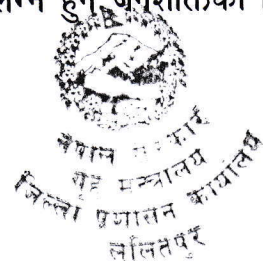 हुने जनशक्तिको
नेपाल सरकार
गृह मन्त्रालय
जिल्ला प्रशासन कार्यालय
ललितपुर